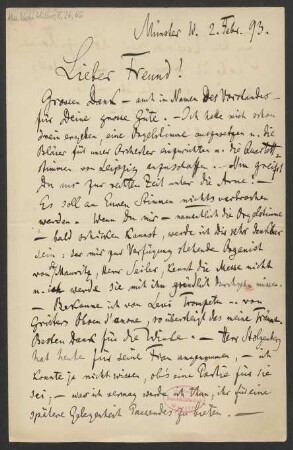 Münster W. 2. Febr. 93.
Lieber Freund!
Grossen Dank – auch im Namen des Vorstandes –
für Deine grosse Güte. – Ich habe mich schon
eine Orgelstimme auszusetzen u. die
Bläser für unser Orchester einzurichten u. die
stimmen von Leipzig anzuschaffen. – Nun greifst
Du uns zur rechten Zeit unter die Arme!
Es soll an Euren Stimmen nichts verbrochen
werden. Wenn Du mir – namentlich die Orgelstimme
– bald schicken kannst, werde ich Dir sehr dankbar
sein: der mir zur Verfügung stehende Organist
von Mauritz, Herr Seiler, kennt die Messe nicht
u. ich werde sie mit ihm gründlich
– Bekomme ich von Trompeten u. von
Oboen d'amore, so übersteigt das meine Träume.
Besten Dank für die Winke. – Herr
hat heute für seine Frau angenommen, – ich
konnte ja nicht wissen, ob's eine Partie für sie
sei; – was ich vermag werde ich thun, ihr für eine
spätere Gelegenheit Passendes zu bieten. –